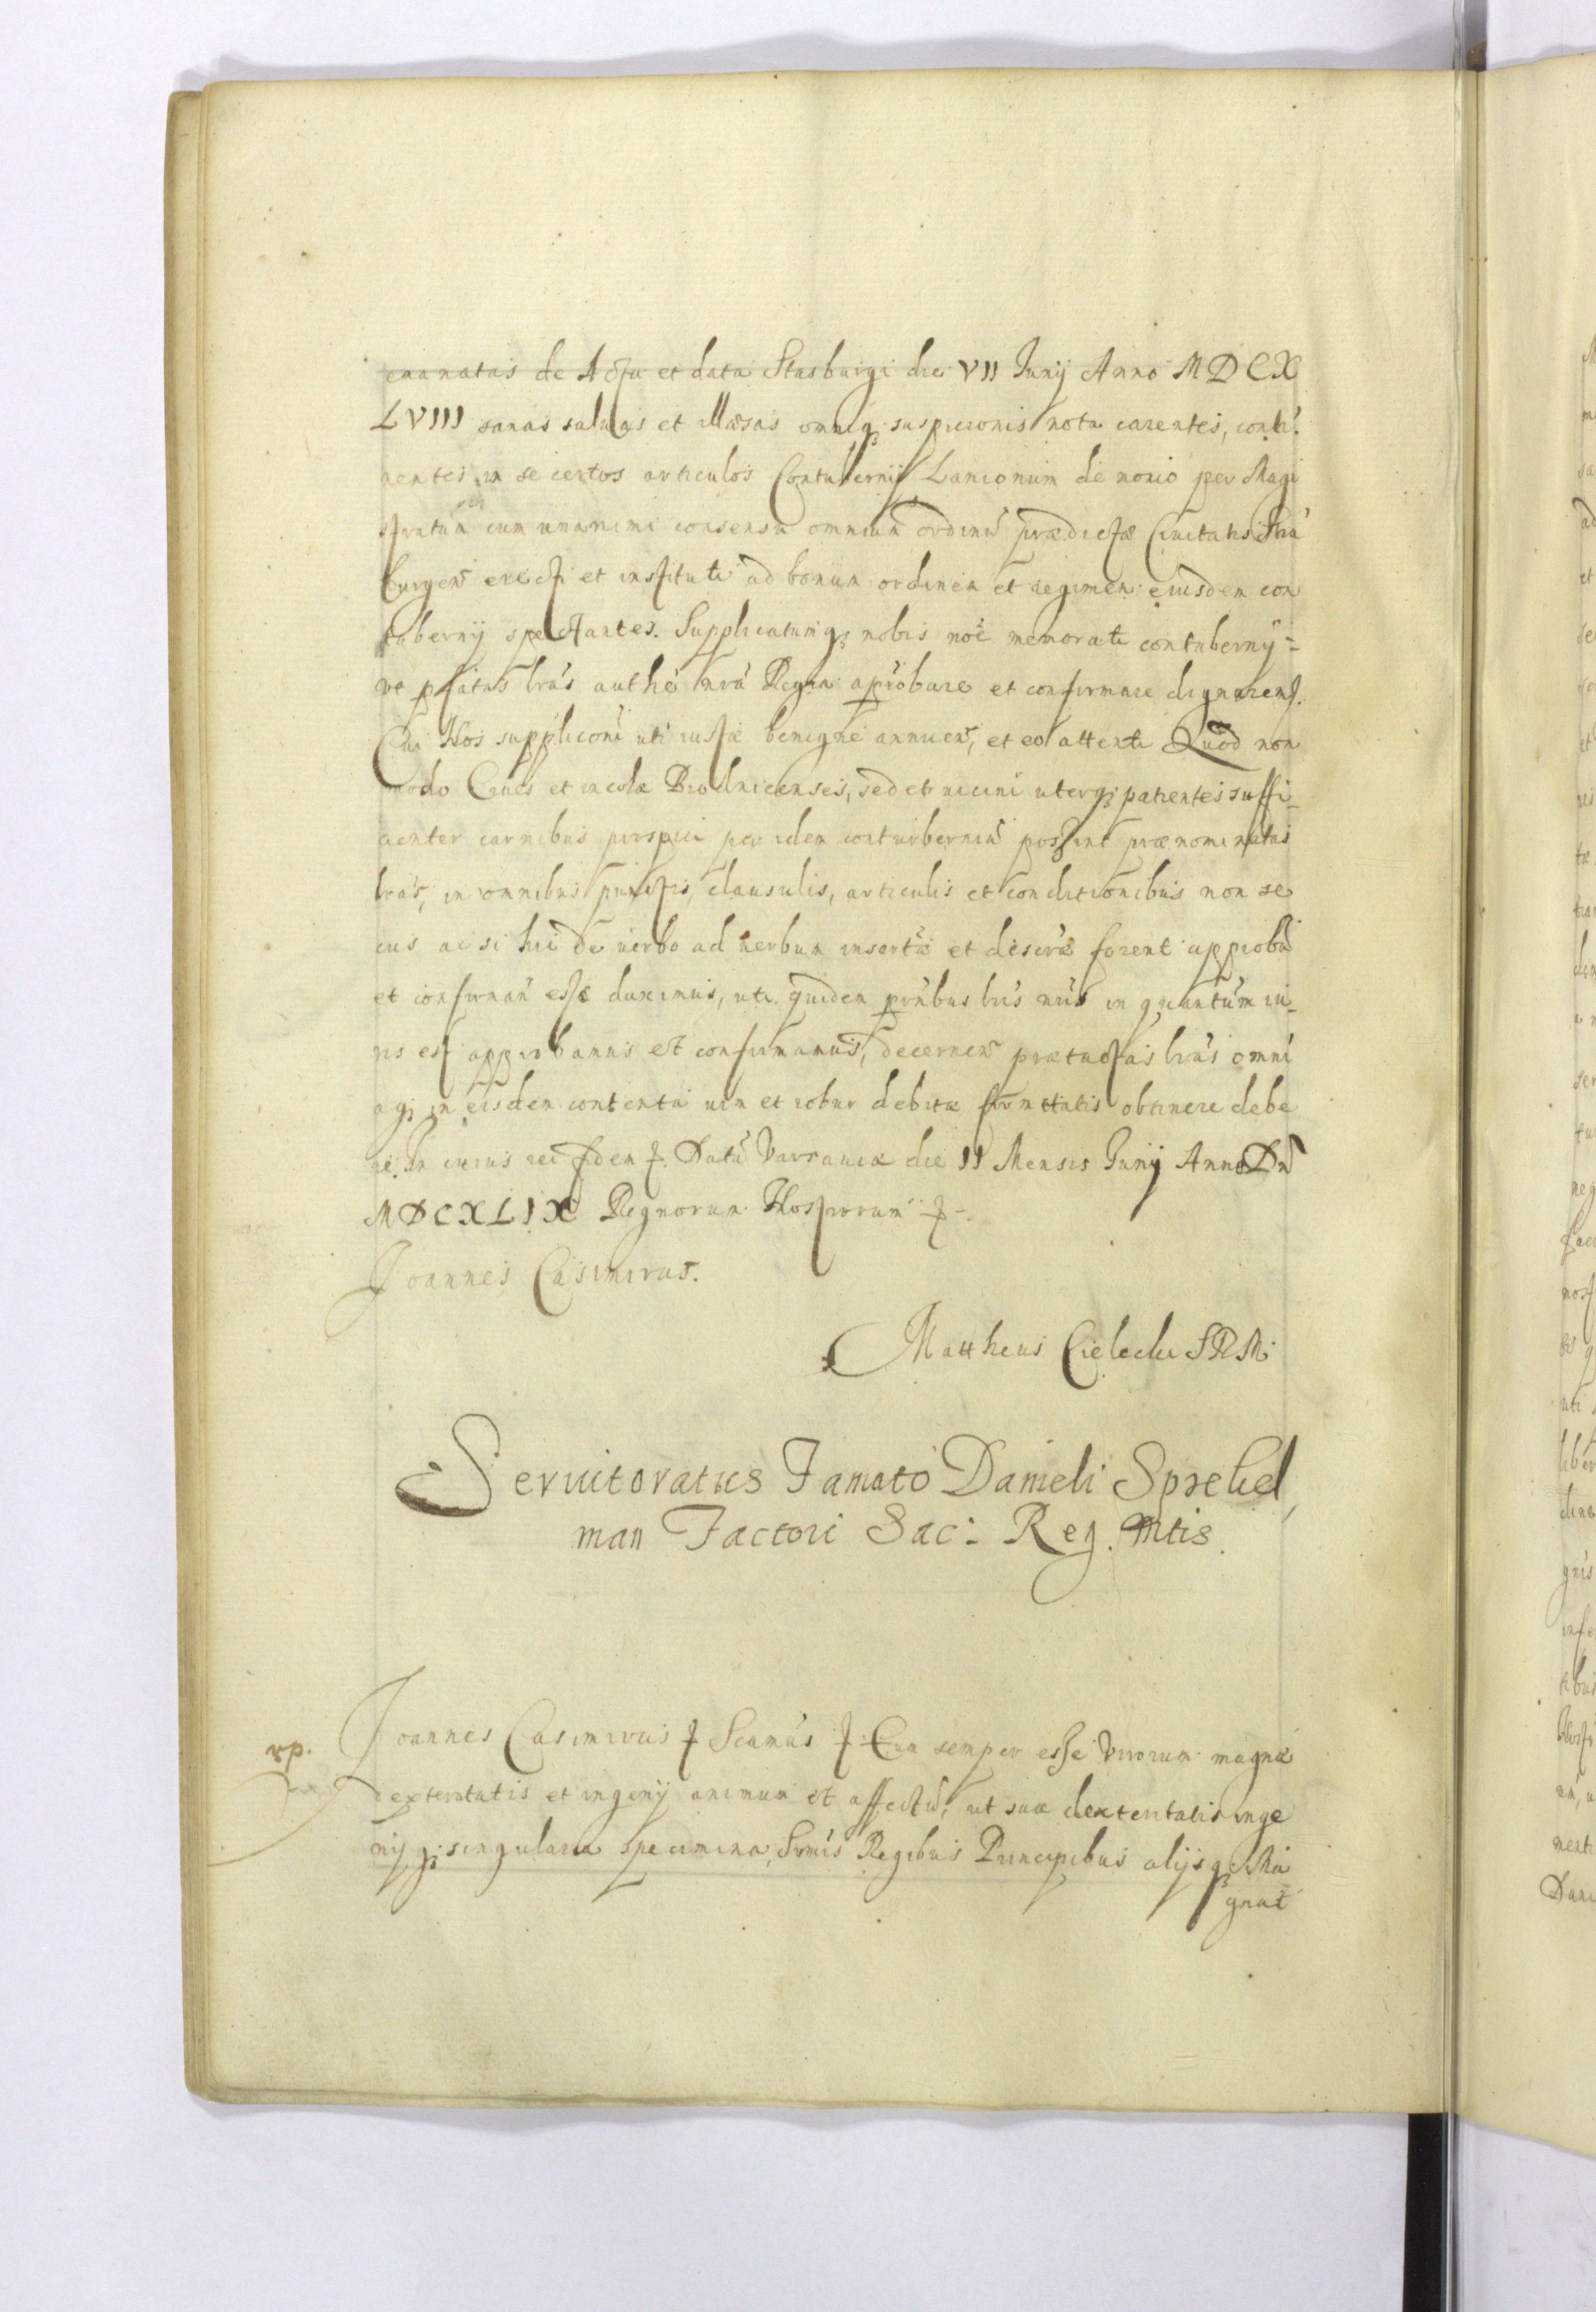 emanatas de Actu et data Strasburgi die VII Junij Anno MDCX
LVIII sanas saluas et illæsas omniq; suspicionis nota carentes, conti
nentes in se certos articulos Contubernij Lanionum de nouo per Magi
stratum cum unanimi consensu omnium ordinũ prædictæ Ciuitatis Stras
burgeñ erecti et instituti ad bonum ordinem et regimen eiusdem con
tubernij spectantes. Supplicatumq; nobis noẽ memorati contubernij
vt pfatas lras authe nra Regia aprobare et confirmare dignaremr.
Cui Nos suppliconi uti iustæ benigne annueñ, et eo attento Quod non
modo Ciues et incolæ Brodnicenses, sed et uicini uterq; patientes suffi
cienter carnibus prospici per idem conturberniũ possint prænominatas
lras, in omnibus punctis, clausulis, articulis et conditionibus non se
cus ac si hic de uerbo ad uerbum insertæ et descræ forent approbañ
et confirmañ esse duximus, uti quidem pntibus lris nris in quantum iu
ris est approbamus et confirmamus, decerneñ prætactas lras omni
aq; in eisdem contenta uim et robur debitæ firmitatis obtinere debe
re. In cuius rei fidem. Datũ Varsauiæ die II Mensis Junij Anno Dñi
MDCXLIX Regnorum Nostrorum
Joannes Casimirus.
Mattheus Cielecki SRM
Seruitoratus Famato Danieli Spretiel
man Factori Sac: Reg. Mtis.
rp.
Joannes Casimirus Seamus Cum semper esse Virorum magnæ
dexteritatis et ingenij animum et affectũ, ut suæ dexteritatis inge
nijq; singularia specimina, Srmis Regibus Principibus alijsq; Ma
gnat